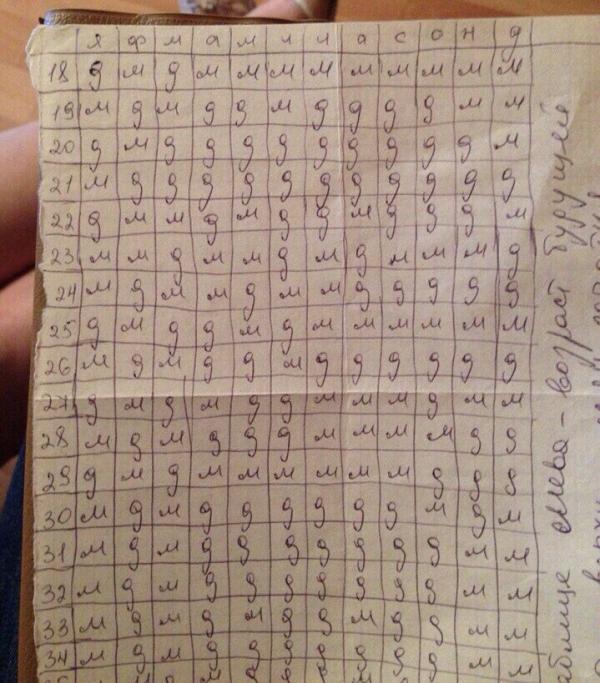 я ф м а м и и а с о н д
18 д м д м м м м м м м м м
19 м д м д д м д д д д м м
20 д м д д д д д д д д д м
21 м д д д д д д д д д д д
22 д м м д м д д м д д д м
23 м м д м м д м д м м м д
24 м д м м д м м д д д д д
25 д м д д м д м м м м м м
26 м д м д д м д д д д д д
27 д м д м д д м м м д м м
28 м д м д д д м м м м д д
29 д м д м м м м м м д д д
30 м д м д д д д д д м д м
31 м д м д д д д д д д м м
32 м д м д д д д д д д м м
33 м д м д м д д м д д м м
34 м д м д д д д д д д м м
слева - возраст будущей